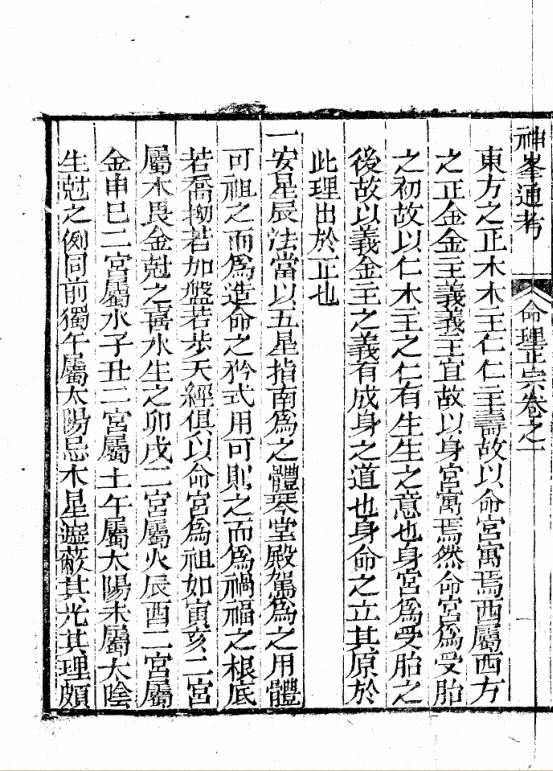 神峯通考 命理正宗卷之一
東方之正木木主仁仁主壽故以命宮寓焉西屬西方
之正金金主義義主直故以身宮寓焉然命宮爲受胎
之初故以仁木主之仁有生生之意也身宮爲受胎之
後故以義金主之義有成身之道也身命之立其原於
此理出於正也
一安星辰法當以五星指南爲之體琴堂殿駕爲之用體
可祖之而爲造命之矜式用可則之而爲禍福之根底
若喬拗若加盤若步天經俱以命宮爲祖如寅亥二宮
屬木畏金尅之喜水生之卯戌二宮屬火辰酉二宮屬
金申巳二宮屬水子丑二宮屬土午屬太陽未屬太陰
生尅之例同前獨午屬太陽忌木星遮蔽其光其理頗